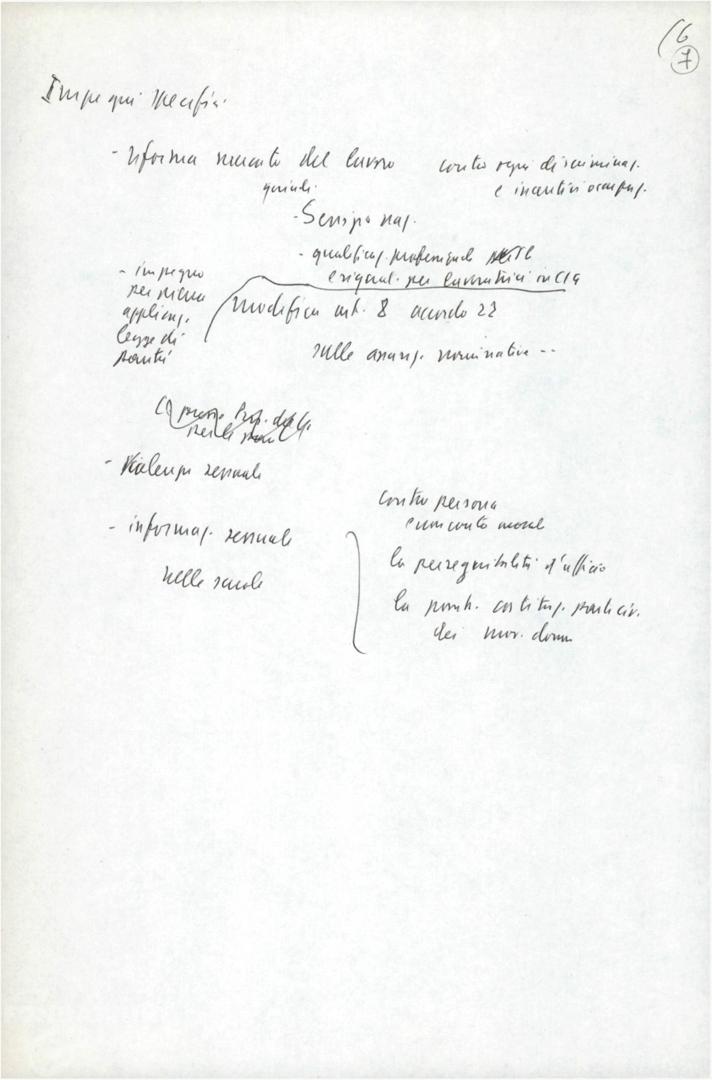 6
7
Impegni specifici
- riforma mercato del lavoro contro ogni discriminaz.
quindi. e incentivi occupaz.
- Servizio naz.
- qualificaz. professionale
e riqual. per lavoratrici in CIG
- impegno
per piena
applicaz.
legge di
parità
modifica art. 8 accordo 22
sulle assunz. nominative --
- Violenza sessuale
- informaz. sessuale
nelle scuole
contro persona
e non contro morale
la perseguibilità d'ufficio
la possib. costituz. parte civ.
dei mov. donne